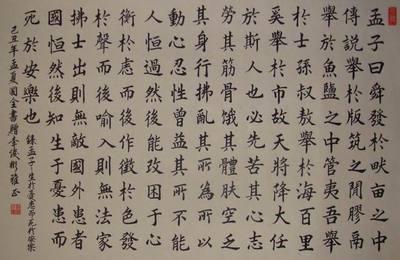 孟子曰舜發於畎亩之中
傳說舉於版筑之間膠鬲
舉於魚鹽之中管夷吾舉
於士孫叔敖舉於海百里
奚舉於市故天將降大任
於斯人也必先苦其心志
勞其筋骨餓其體膚空乏
其身行拂亂其所為所以
動心忍性曾益其所不能
人恒過然後能改困于心
衡於慮而後作徵於色發
於聲而後喻入則無法家
拂士出則無敵國外患者
國恒然後知生于憂患而
死於安樂也
錄孟子生於憂患而死於安樂
己丑年孟夏國全書贈李俊 雅正